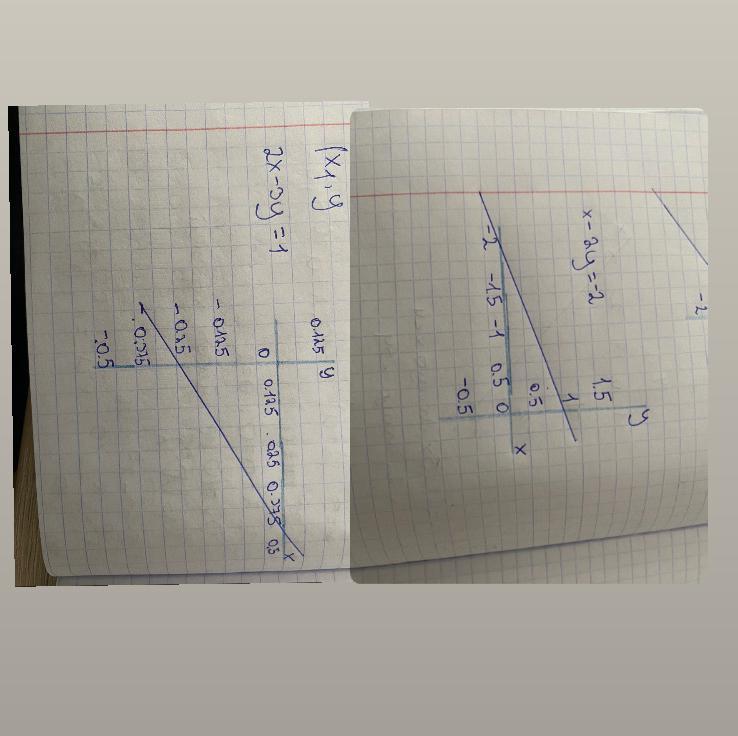 -2
x-2y=-2
y
1.5
1
0.5
-2 -1.5 -1 0.5 0 x
-0.5
(x1, y
2x-3y=1
y
0.125
0 0.125 0.25 0.375 0.5 x
-0.125
-0.25
-0.375
-0.5